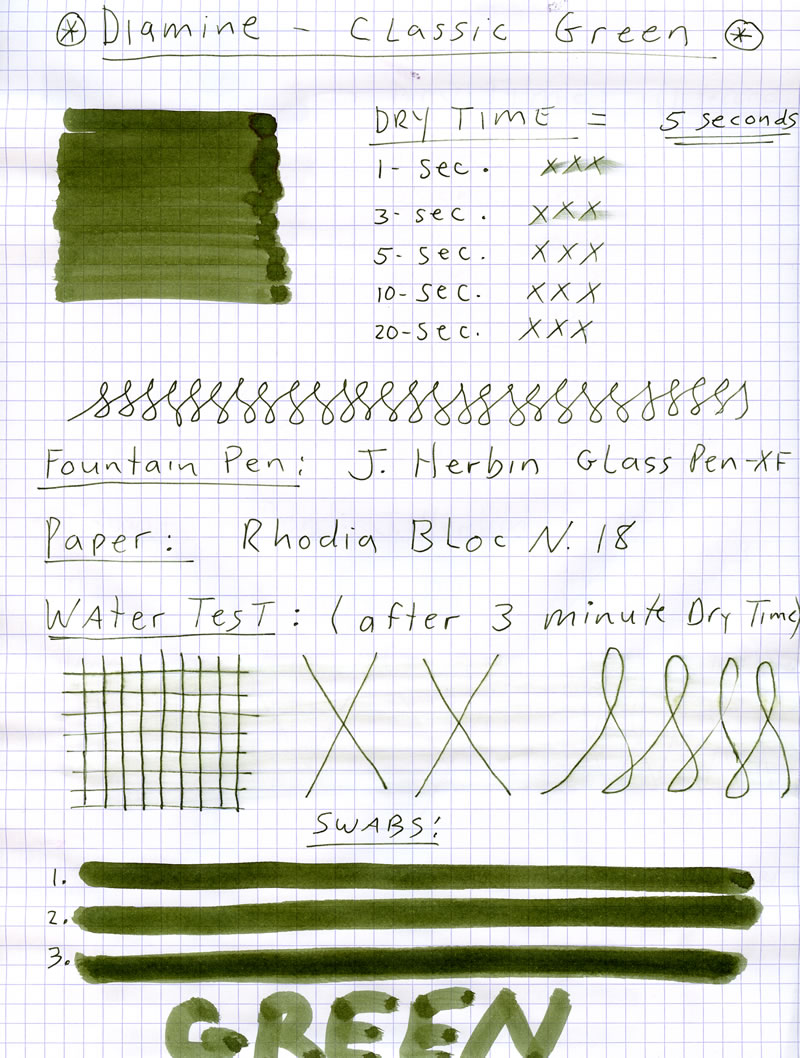 * Diamine - Classic Green *
DRY TIME = 5 seconds
1- sec. XXX
3- sec. XXX
5- sec. XXX
10- sec. XXX
20- sec. XXX
Fountain Pen: J. Herbin Glass Pen-XF
Paper: Rhodia Bloc N. 18
Water Test: (after 3 minute Dry Time)
X X
SWABS:
1.
2.
3.
GREEN